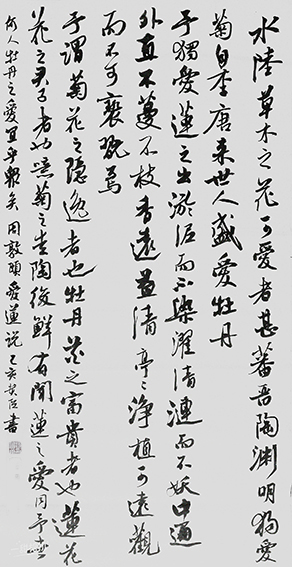 水陸草木之花可愛者甚蕃晋陶渊明獨愛
菊自李唐来世人盛愛牡丹
予獨愛蓮之出淤泥而不染濯清漣而不妖中通
外直不蔓不枝香遠益清亭〻净植可遠觀
而不可褻翫焉
予謂菊花之隐逸者也牡丹花之富貴者也蓮花
花之君子者也噫菊之愛陶後鮮有聞蓮之愛同予者
何人牡丹之愛宜乎衆矣 周敦頤愛蓮説 乙亥 書